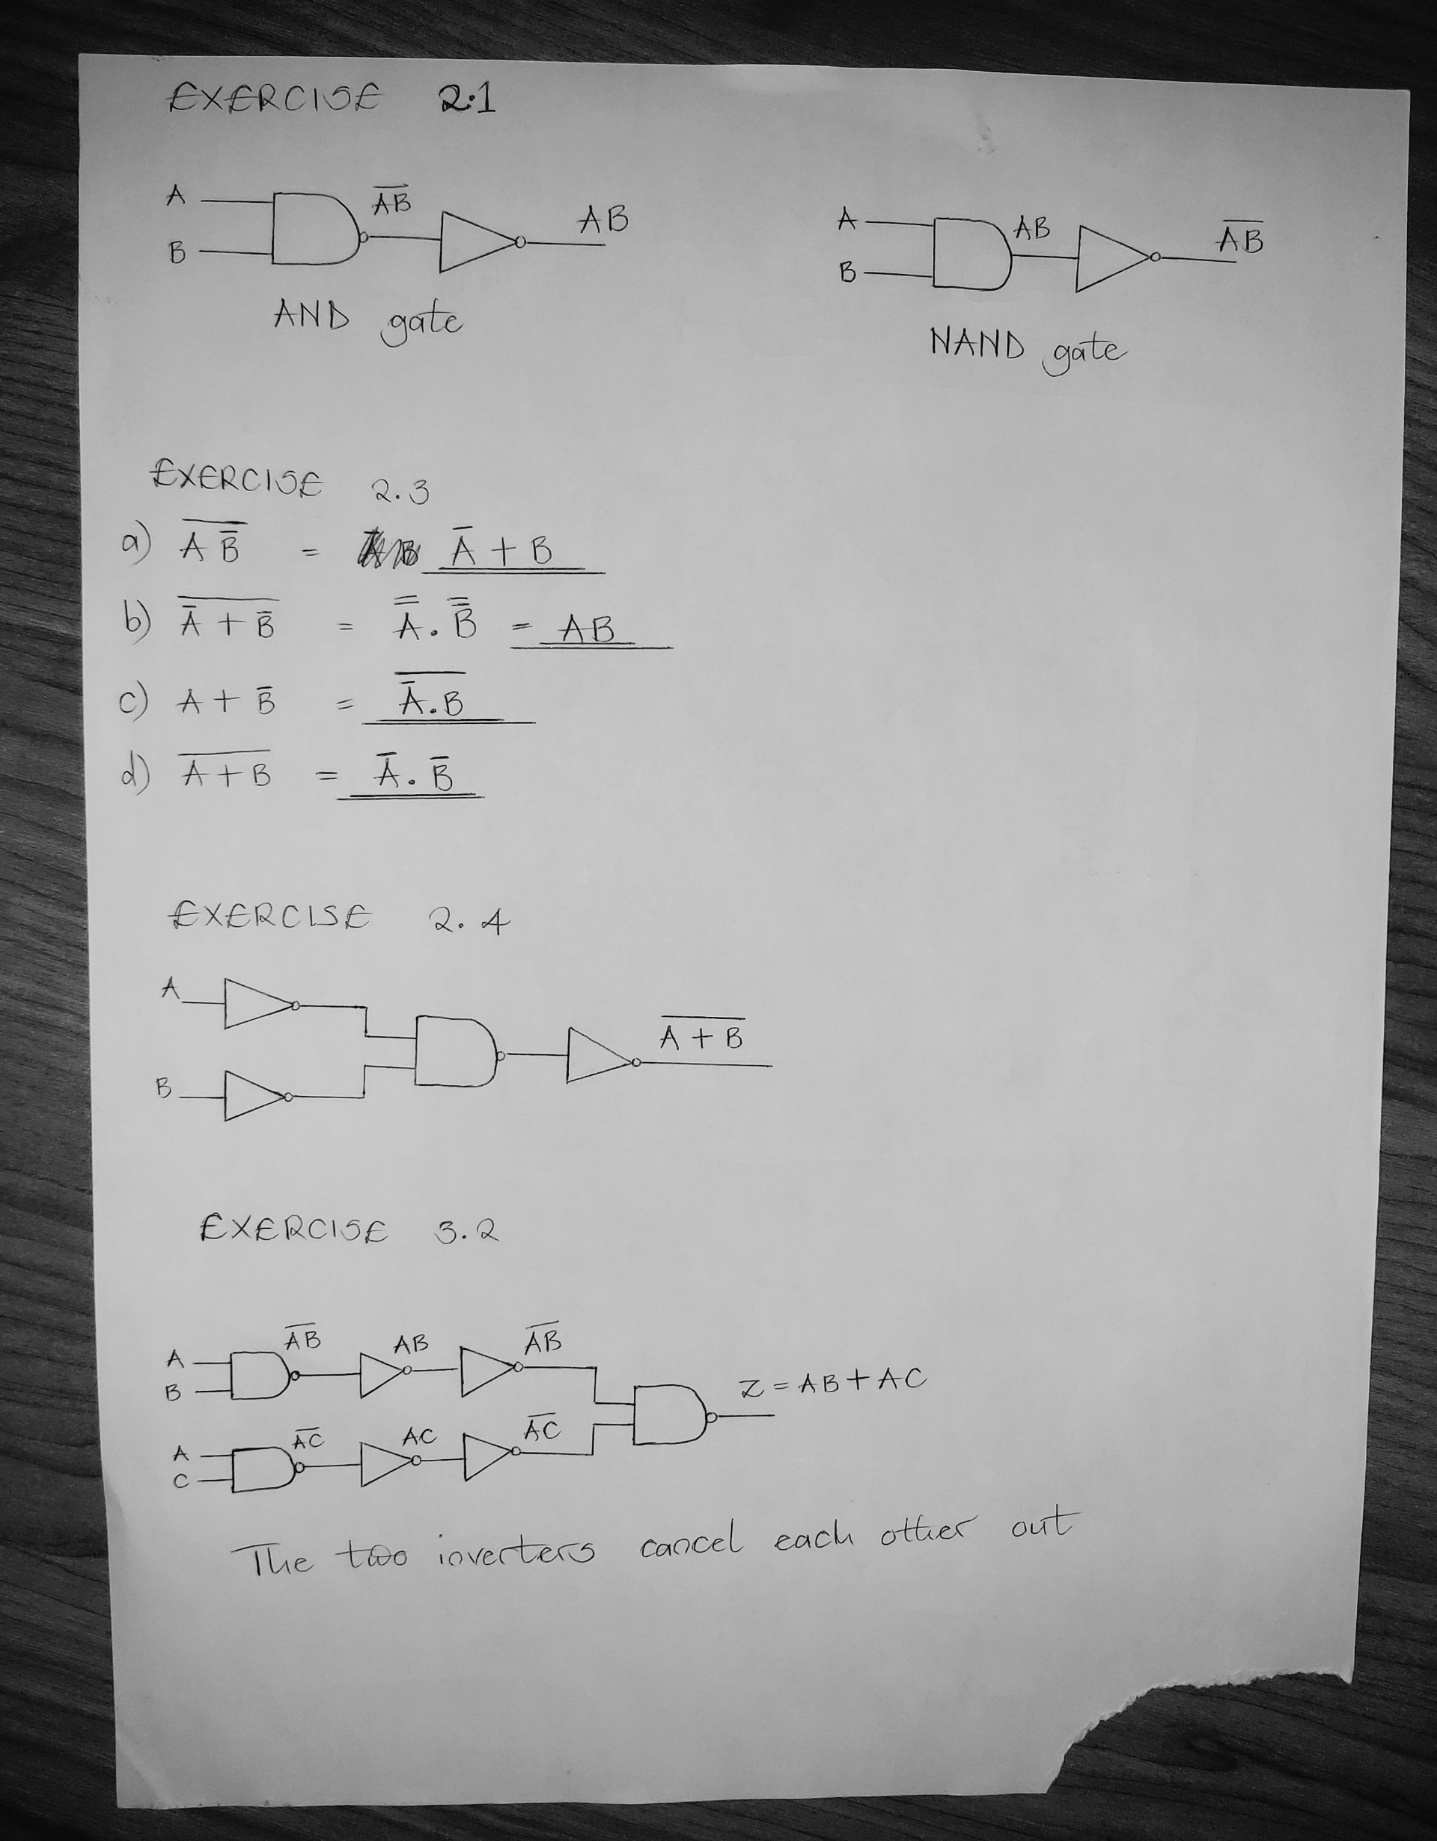 EXERCISE 2.1
A
B
A̅B̅
AB
AND gate
A
B
AB
A̅B̅
NAND gate
EXERCISE 2.3
a) $\overline{A\bar{B}}$ = $\bar{A}+B$
b) $\overline{\bar{A}+\bar{B}}$ = $\bar{\bar{A}}.\bar{\bar{B}}$ = AB
c) $A+\bar{B}$ = $\overline{\bar{A}.B}$
d) $\overline{A+B}$ = $\bar{A}.\bar{B}$
EXERCISE 2.4
A
B
$\overline{A+B}$
EXERCISE 3.2
A
B
A̅B̅
AB
A̅B̅
A
C
A̅C̅
AC
A̅C̅
Z = AB + AC
The two inverters cancel each other out